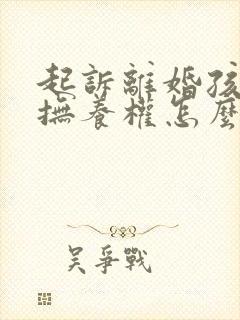 起訴離婚孩
撫養權怎麼
吳爭戰